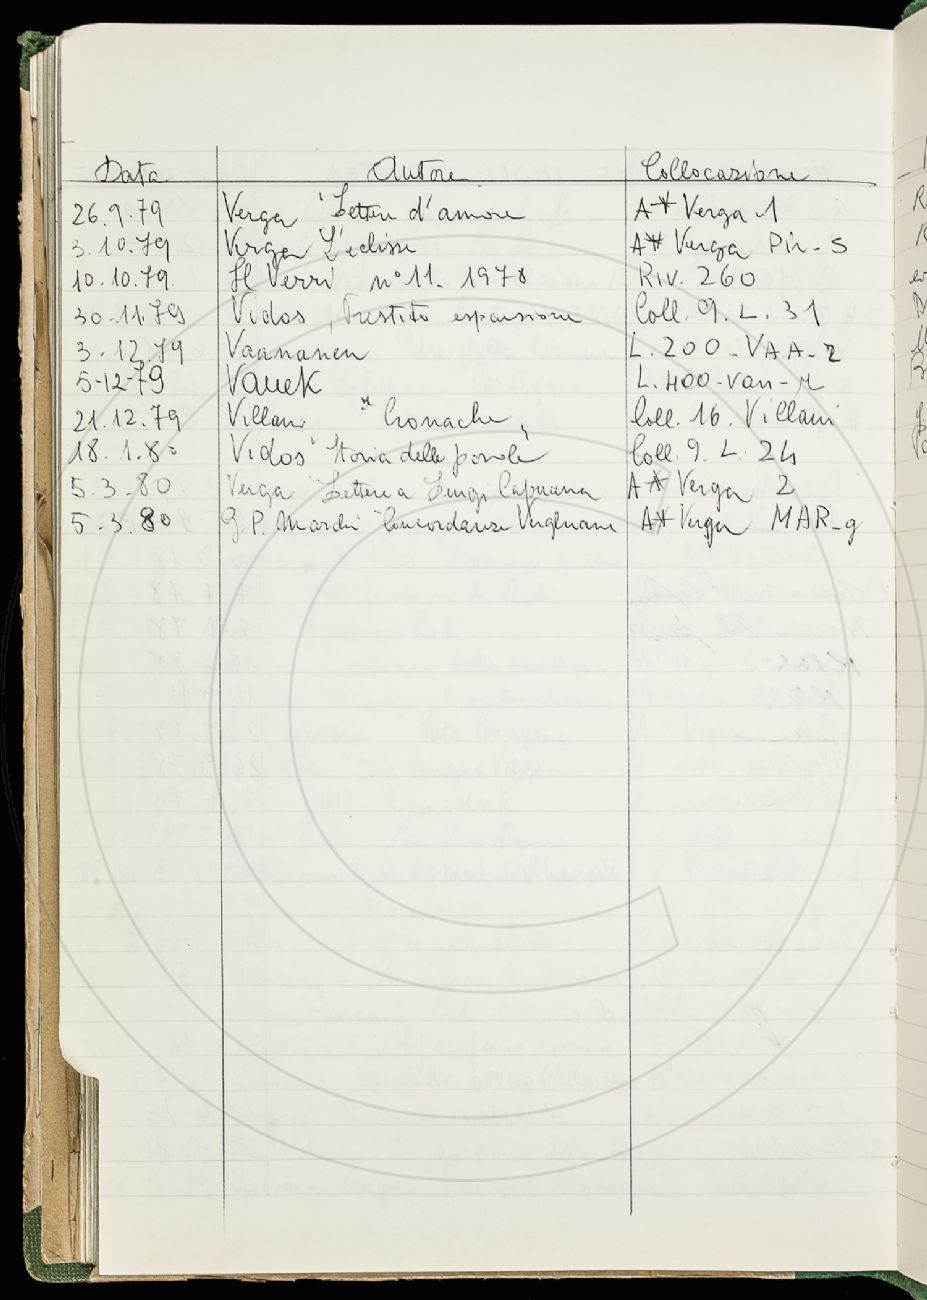 Data Autore Collocazione
26.9.79 Verga "Lettere d'amore A* Verga 1
3.10.79 Verga L'eclisse A* Verga Pir-S
10.10.79. Il Verri n° 11. 1978 Riv. 260
30-11.79 Vidos, Prestito espansione Coll. 9. L. 31
3.12.79 Vaananen L.200-VAA-2
5-12-79 Vanek L.400-Van-
21.12.79 Villani " Cronache, Coll. 16. Villani
18.1.80 Vidos "Storia delle parole Coll. 9. L. 24
5.3.80 Verga "Lettere a Luigi Capuana A* Verga 2
5.3.80 G. P. "Concordanze Verghiane A* Verga MAR-g